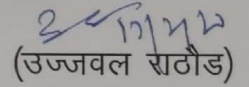 (उज्जवल राठौड)